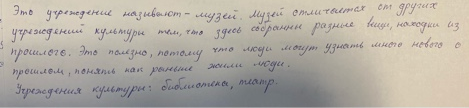 Это учреждение называют - музей. Музей отличается от других
учреждений культуры тем, что здесь собраны разные вещи, находки из
прошлого. Это полезно, потому что люди могут узнать много нового о
прошлом, понять как раньше жили люди.
Учреждения культуры: библиотека, театр.